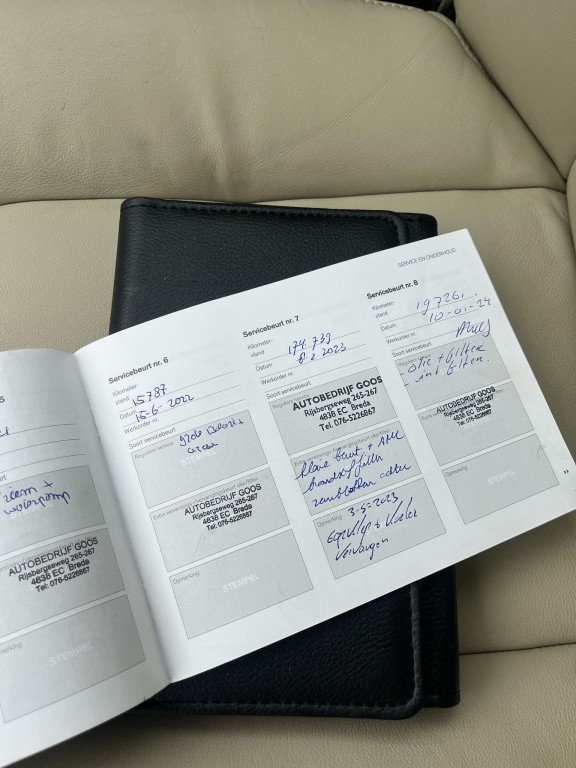 SERVICE EN ONDERHOUD
riem +
waterpomp
AUTOBEDRIJF GOOS
Rijsbergseweg 265-267
4838 EC Breda
Tel: 076-5226867
STEMPEL
Servicebeurt nr. 6
Kilometer-
stand
15787
Datum
15-6-2022
Werkorder nr.
Soort servicebeurt
Reguliere service
grote beurt +
STEMPEL
AUTOBEDRIJF GOOS
Rijsbergseweg 265-267
4838 EC Breda
Tel: 076-5226867
Opmerking
STEMPEL
Servicebeurt nr. 7
Kilometer-
stand
174.739
Datum
8.2.2023
Werkorder nr.
Soort servicebeurt
AUTOBEDRIJF GOOS
Rijsbergseweg 265-267
4838 EC Breda
Tel. 076-5226867
kleine beurt +
brandstoffilter
remblokken achter
Opmerking
3-5-2023
Egrklep + koeler
vervangen
Servicebeurt nr. 8
Kilometer-
stand
19726
Datum
10-01-24
Werkorder nr.
Soort servicebeurt
olie + filter
AUTOBEDRIJF GOOS
Rijsbergseweg 265-267
4838 EC Breda
Tel. 076-5226867
Opmerking
STEMPEL